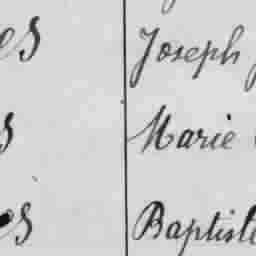 es Joseph
s Marie
es Baptiste